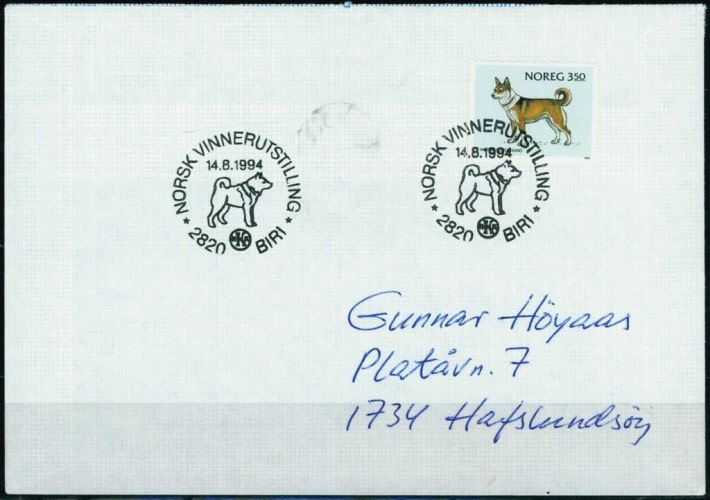 NOREG 350
NORSK VINNERUTSTILLING
14.8.1994
NKK
2820 BIRI
NORSK VINNERUTSTILLING
14.8.1994
NKK
2820 BIRI
Gunnar Höyaas
Platåvn. 7
1734 Hafslundsöy